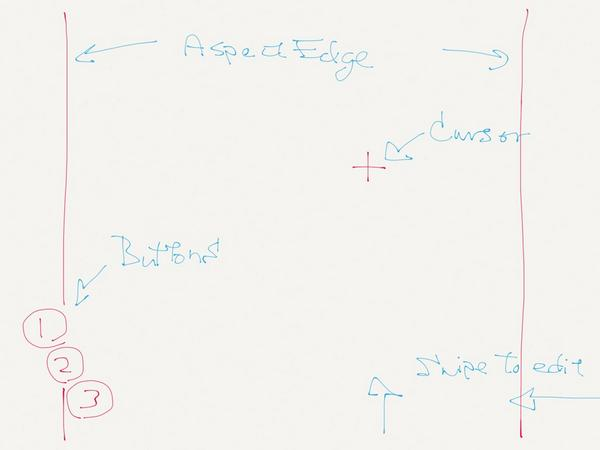 Aspect Edge
Cursor
Buttons
1
2
3
Swipe to edit